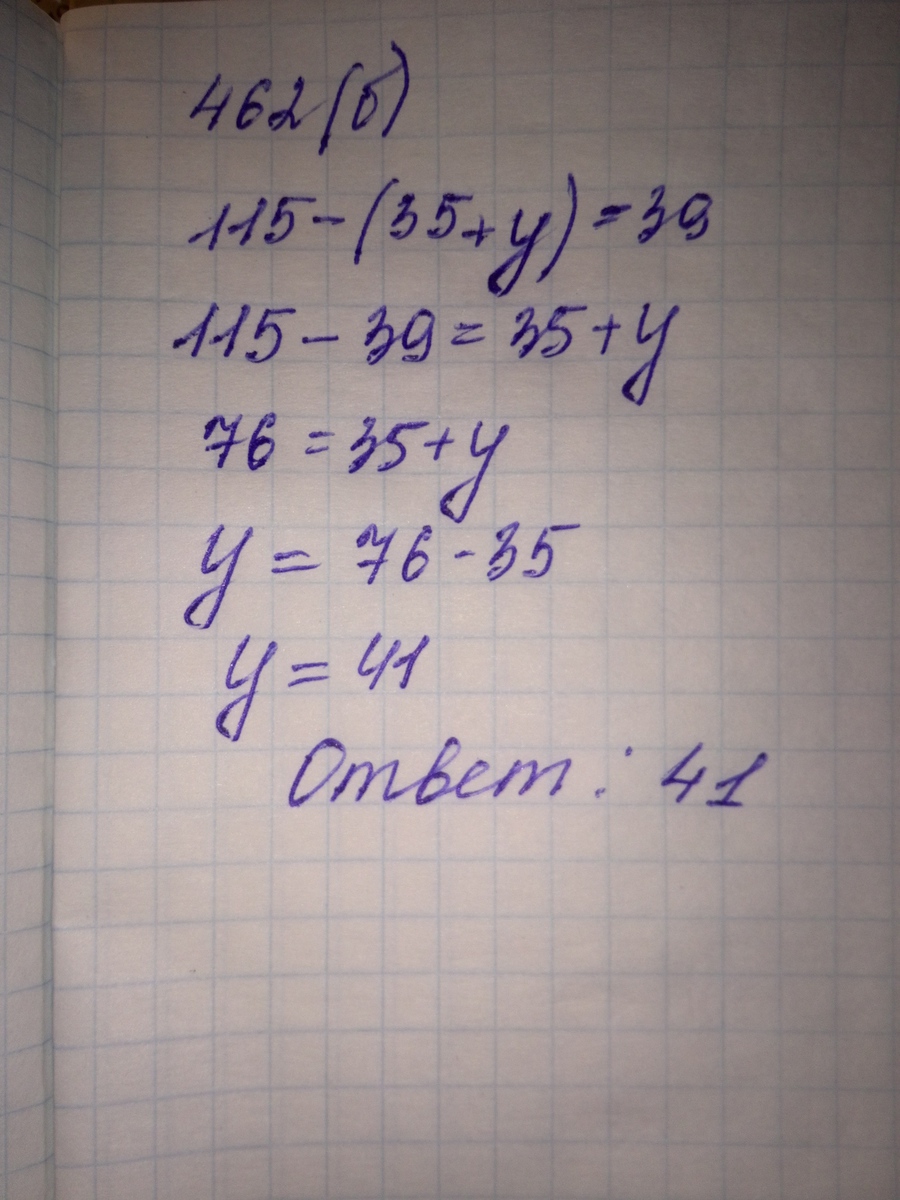 462(б)
115-(35+y)=39
115-39=35+y
76=35+y
y=76-35
y=41
Ответ: 41